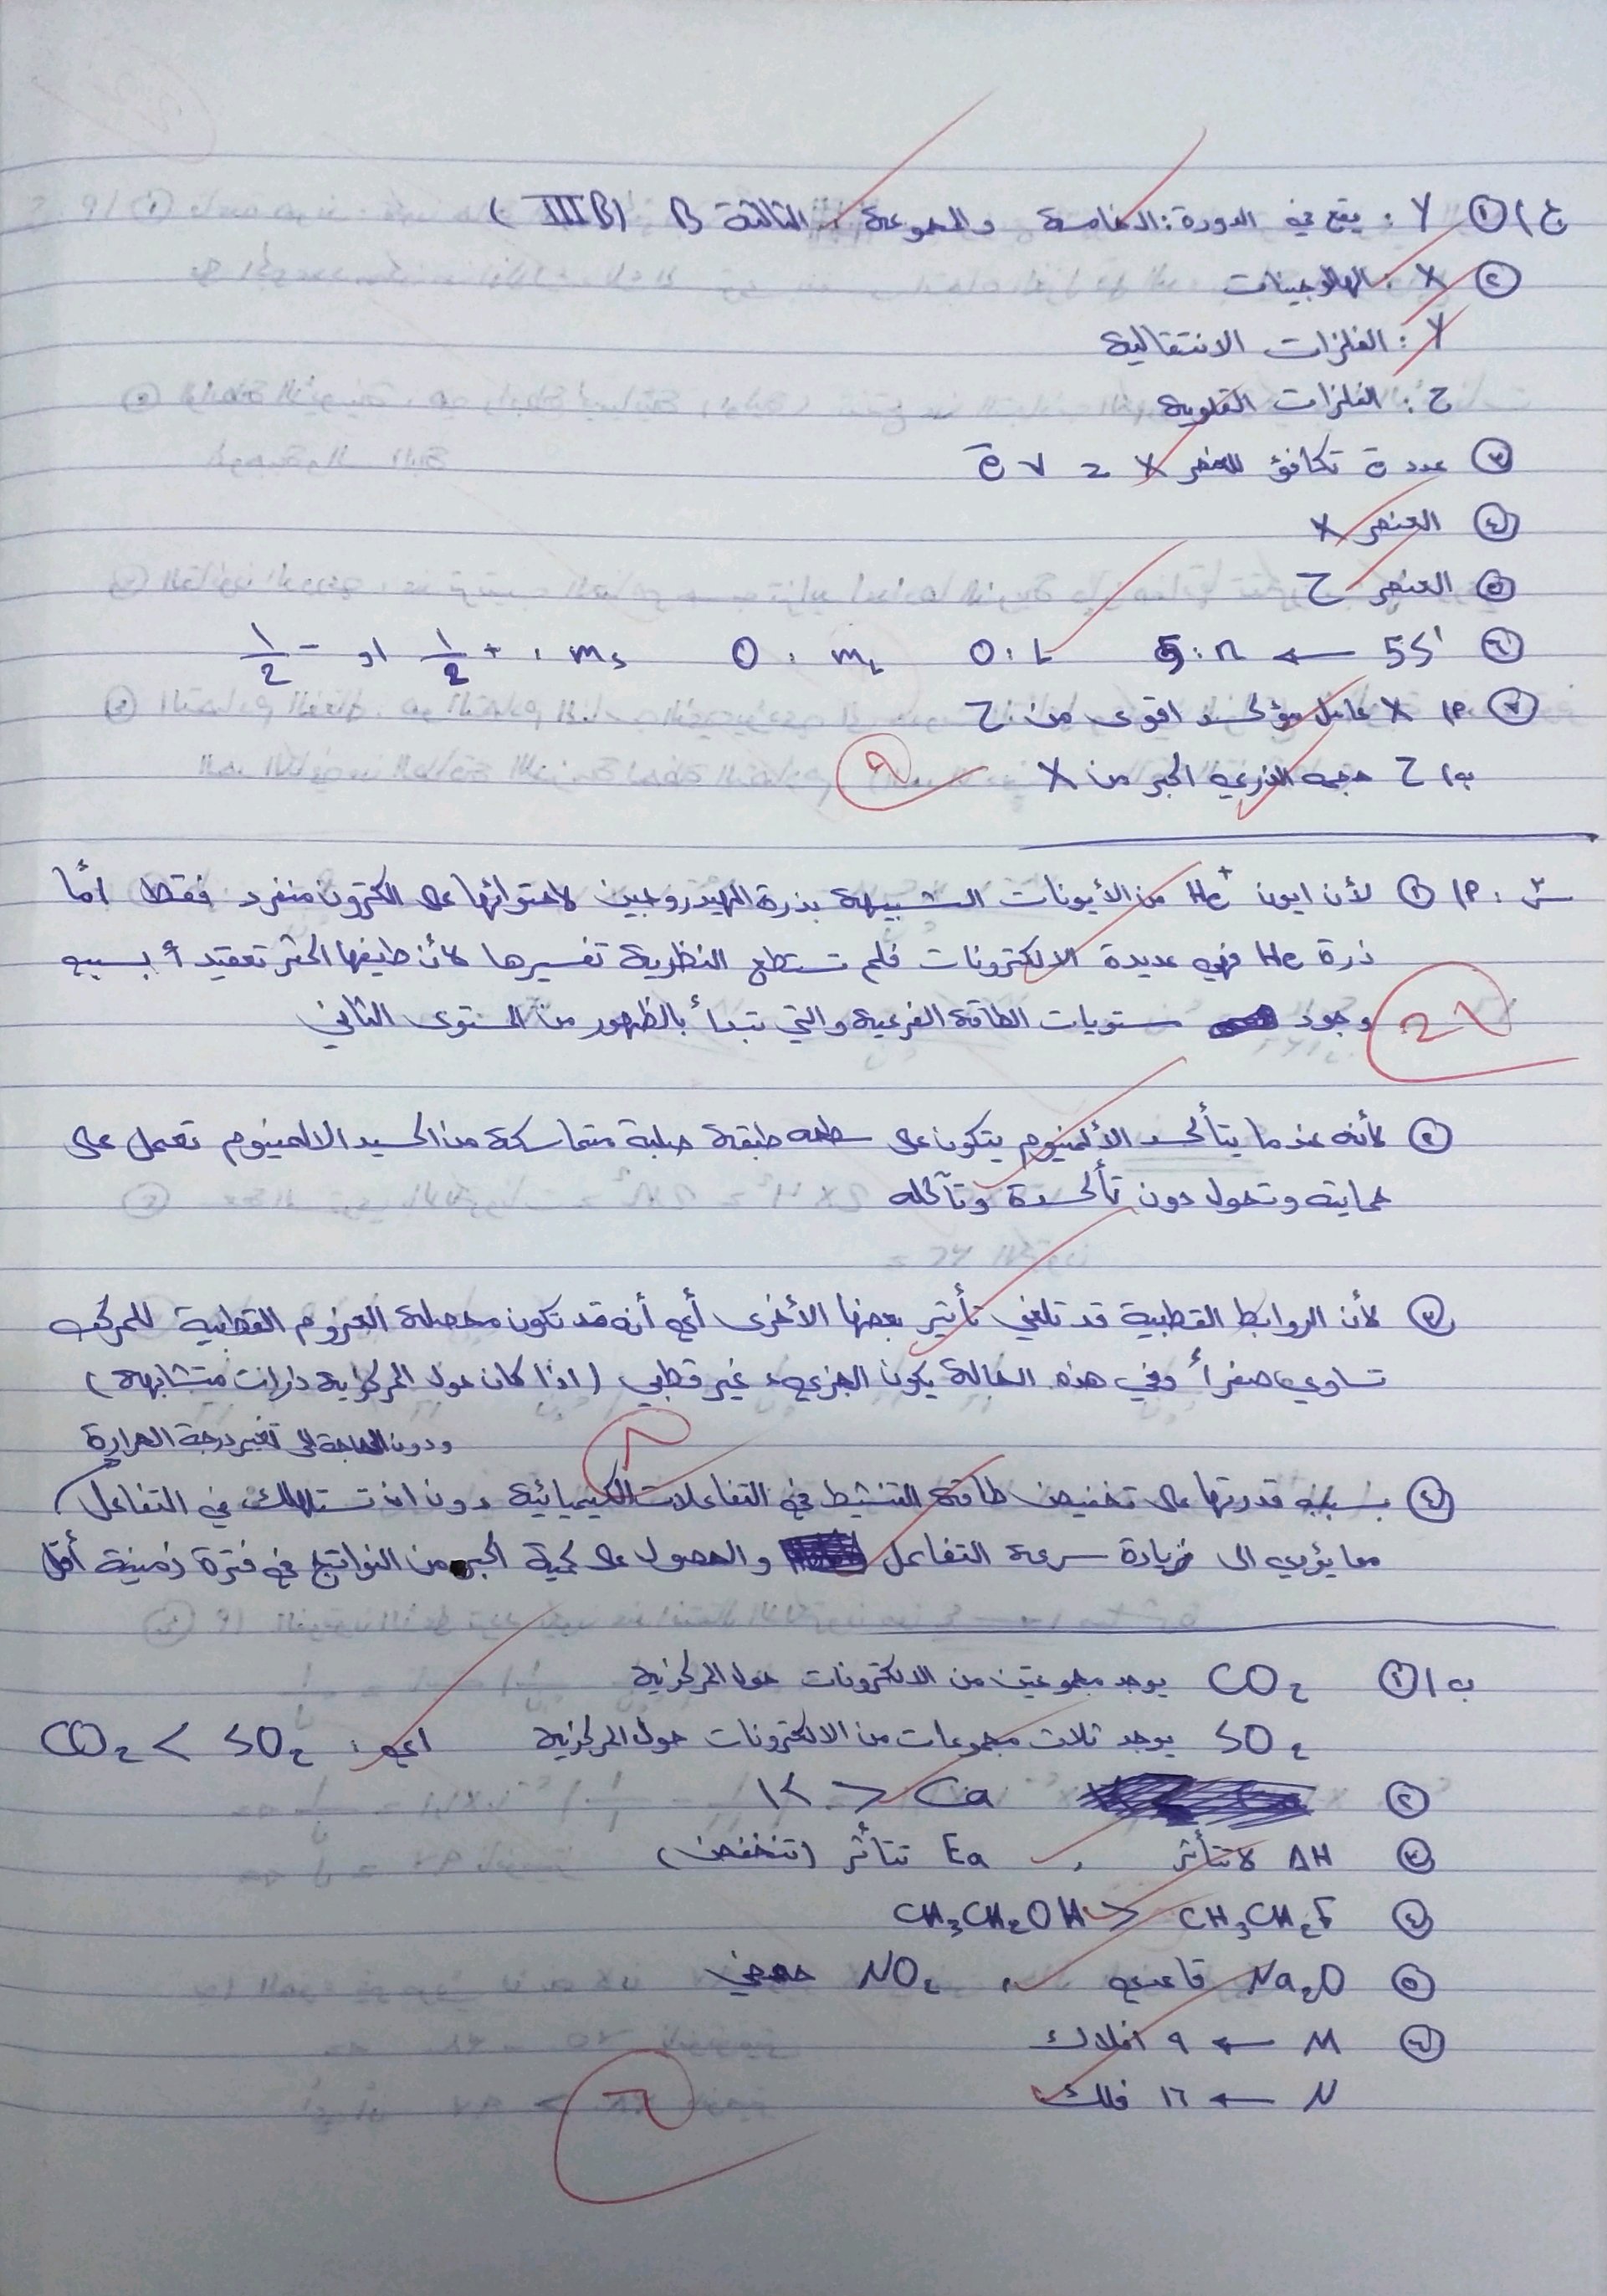 ج) ① Y : يقع في الدورة : الخامسة والمجموعة : الثالثة B (IIIB)
② X : الهالوجينات
Y : الفلزات الانتقالية
Z : الفلزات القلوية
③ عدد ē تكافؤ للعنصر X = ٧ ē
④ العنصر X
⑤ العنصر Z
⑥ 5S¹ ← n : 5 L : 0 mL : 0 ms : + 1/2 او - 1/2
⑦ أ) X عامل مؤكسد اقوى من Z
ب) Z حجمه الذري اكبر من X
٩
س٢ : أ) ① لأن ايون He⁺ من الأيونات الشبيهة بذرة الهيدروجين لاحتوائها على الكترون منفرد فقط أمّا
ذرة He فهي عديدة الالكترونات فلم تستطع النظرية تفسيرها لأن طيفها اكثر تعقيداً بسبب
وجود مستويات الطاقة الفرعية والتي تبدأ بالظهور من المستوى الثاني
② لأنه عندما يتأكسد الألمنيوم يتكون على سطحه طبقة صلبة متماسكة من اكسيد الالمنيوم تعمل على
حمايته وتحول دون تأكسدة وتآكله
③ لأن الروابط القطبية قد تلغي تأثير بعضها الأخرى أي أنه قد تكون محصلة العزوم القطبية للمركب
تساوي صفراً وفي هذه الحالة يكون الجزيء غير قطبي (اذا كان حول المركزية ذرات متشابهة)
ودون الحاجة الى تغير درجة الحرارة
④ بسبب قدرتها على تخفيض طاقة التنشيط في التفاعلات الكيميائية دون ان تستهلك في التفاعل
مما يؤدي الى زيادة سرعة التفاعل والحصول على كمية اكبر من النواتج في فترة زمنية أقل
٨
ب) ① CO₂ يوجد مجموعتين من الالكترونات حول المركزية
SO₂ يوجد ثلاث مجموعات من الالكترونات حول المركزية اي : CO₂ < SO₂
② K > Ca
③ ΔH لا تتأثر , Ea تتأثر (تنخفض)
④ CH₃CH₂OH > CH₃CH₂F
⑤ Na₂O قاعدي , NO₂ حمضي
⑥ M ← ٩ افلاك
N ← ١٦ فلك
٦